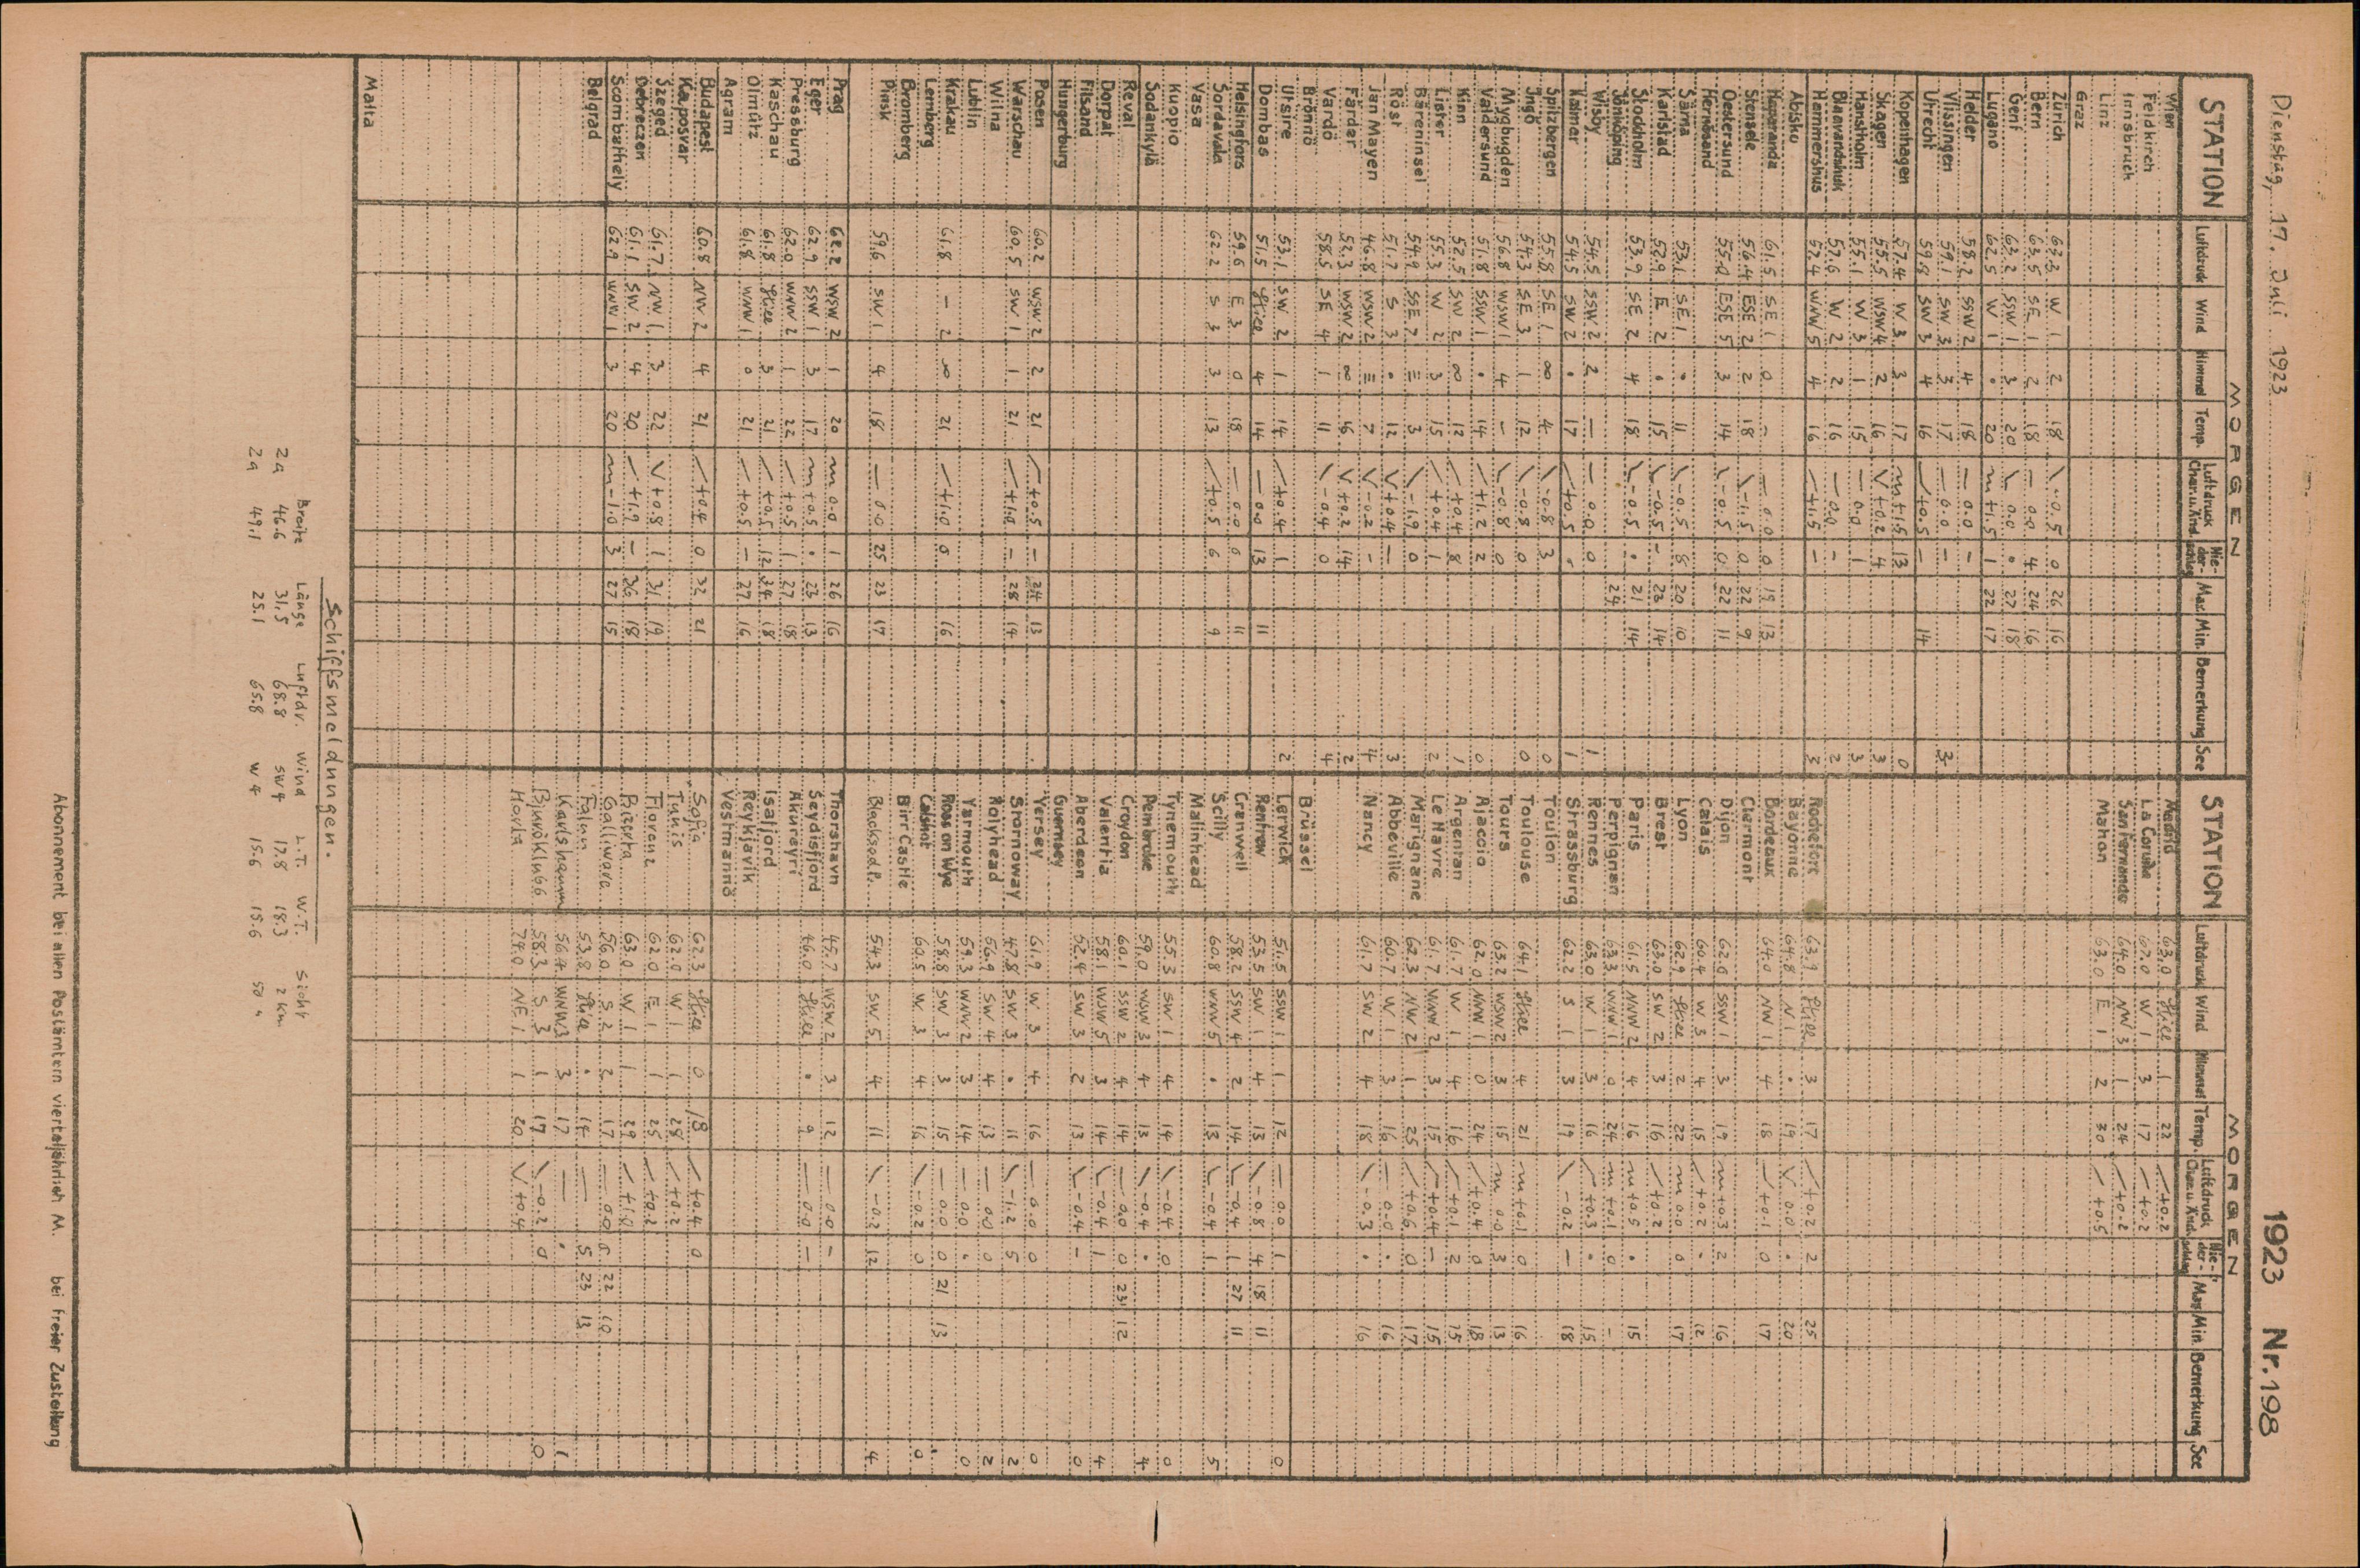 Dienstag, 17. Juli 1923
1923 Nr. 198
MORGEN
STATION Luftdruck Wind Himmel Temp. Luftdruck Char.u.Änd. Nie-der-schlag Max Min. Bemerkung See
Wien
Feldkirch
Innsbruck
Linz
Graz
Zürich 63.3 W 1 2 18 \ -0.5 0 26 16
Bern 63.5 SE 1 2 18 — 0.0 4 24 16
Genf 63.2 SSW 1 3 20 \ 0.0 • 27 18
Lugano 62.5 W 1 • 20 m +1.5 1 22 17
Helder 58.2 SSW 2 4 18 — 0.0 —
Vlissingen 59.1 SW 3 3 17 — 0.0 — 3
Utrecht 59.8 SW 3 4 16 / +0.5 — 14
Kopenhagen 57.4 W 3 3 17 m +1.5 13 0
Skagen 55.5 WSW 4 2 16 V +0.2 4 3
Hanstholm 55.1 W 3 1 15 — 0.0 1 3
Blavandshuk 57.6 W 2 2 16 — 0.0 — 2
Hammershus 57.4 WNW 5 4 16 / +1.5 — 3
Abisko
Haparanda 61.5 SE 1 0 — — 0.0 0 19 13
Stensele 56.4 ESE 2 2 18 \ -1.5 0 22 9
Oestersund 55.0 ESE 5 3 14 \ -0.5 0 22 11
Hernösand
Särna 53.1 SE 1 • 11 \ -0.5 8 20 10
Karlstad 52.9 E 2 • 15 \ -0.5 — 23 14
Stockholm 53.9 SE 2 4 18 \ -0.5 • 21 14
Jönköping 24
Wisby 54.5 SSW 2 2 — — 0.0 0 1
Kalmar 54.5 SW 2 • 17 / +0.5 • 1
Spitzbergen 55.8 SE 1 ∞ 4 \ -0.8 3 0
Ingö 54.3 SE 3 1 12 \ -0.8 0 0
Mygbugden 56.8 WSW 1 4 — \ -0.8 0
Valdersund 51.8 SSW 1 • 14 / +1.2 2 0
Kinn 52.5 SW 2 ∞ 12 / +0.4 8 1
Lister 55.3 W 2 3 15 / +0.4 1 2
Bäreninsel 54.9 SSE 7 ≡ 3 \ -1.9 0
Röst 51.7 S 3 • 12 V +0.4 — 3
Jan Mayen 46.8 WSW 2 ≡ 7 V -0.2 — 4
Färder 53.3 WSW 2 ∞ 16 V +0.2 14 2
Vardö 58.5 SE 4 1 11 \ -0.4 0 4
Brönnö
Utsire 53.1 SW 2 1 14 / +0.4 1 2
Dombas 51.5 Stille 4 14 — 0.0 13 11
Helsingfors 59.6 E 3 0 18 — 0.0 0 11
Sordavala 62.2 S 3 3 13 / +0.5 6 9
Vasa
Kuopio
Sodankylä
Reval
Dorpat
Filsand
Hungerburg
Posen 60.2 WSW 2 2 21 / +0.5 — 24 13
Warschau 60.5 SW 1 1 21 / +1.0 — 28 14
Wilna
Lublin
Krakau 61.8 — 2 ∞ 21 / +1.0 0 16
Lemberg
Bromberg
Pinsk 59.6 SW 1 4 18 — 0.0 25 23 17
Prag 62.2 WSW 2 1 20 m 0.0 1 26 16
Eger 62.9 SSW 1 3 17 m +0.5 • 23 13
Pressburg 62.0 WNW 2 1 22 / +0.5 1 27 18
Kaschau 61.8 Stille 3 21 / +0.5 12 24 18
Olmütz 61.8 WNW 1 0 21 / +0.5 — 27 16
Agram
Budapest 60.8 NW 2 4 21 / +0.4 0 32 21
Kaposvar
Szeged 61.7 NW 1 3 22 V +0.8 1 31 19
Debreczen 61.1 SW 2 4 20 / +1.9 — 36 18
Scombathely 62.9 WNW 1 3 20 m -1.0 3 27 15
Belgrad
Malta
MORGEN
STATION Luftdruck Wind Himmel Temp. Luftdruck Char.u.Änd. Nie-der-schlag Max Min. Bemerkung See
Madrid 63.0 Stille 1 22 / +0.2
La Coruña 67.0 W 1 3 17 / +0.2
San Fernando 64.0 NW 3 1 24 / +0.2
Mahon 63.0 E 1 2 30 / +0.5
Rochefort 63.9 Stille 3 17 / +0.2 2 25
Bayonne 64.8 N 1 • 19 V 0.0 • 20
Bordeaux 64.0 NW 1 4 18 / +0.1 0 17
Clermont
Dijon 62.6 SSW 1 3 19 m +0.3 2 16
Calais 60.4 W 3 4 15 / +0.2 • 12
Lyon 62.9 Stille 2 22 m 0.0 0 17
Brest 63.0 SW 2 3 16 / +0.2
Paris 61.5 NNW 2 4 16 m +0.5 • 15
Perpignan 63.3 WNW 1 0 24 m +0.1 0 —
Rennes 63.0 W 1 3 16 / +0.3 • 15
Strassburg 62.2 S 1 3 19 \ -0.2 — 18
Toulon
Toulouse 64.1 Stille 4 21 m +0.1 0 16
Tours 63.2 WSW 2 3 15 m 0.0 3 13
Ajaccio 62.0 NNW 1 0 24 / +0.4 0 18
Argentan 61.7 W 1 4 16 / +0.1 2 15
Le Havre 61.7 WNW 2 3 15 / +0.4 — 15
Marignane 62.3 NW 2 1 25 / +0.6 0 17
Abbeville 60.7 W 1 3 16 — 0.0 • 16
Nancy 61.7 SW 2 4 18 \ -0.3 • 16
Brüssel
Lerwick 51.5 SSW 1 1 12 — 0.0 1 0
Renfrew 53.5 SW 1 4 13 \ -0.8 4 18 11
Cranwell 58.2 SSW 4 2 14 \ -0.4 1 27 11
Scilly 60.8 WNW 5 • 13 \ -0.4 1 5
Malinhead
Tynemouth 55.3 SW 1 4 14 \ -0.4 0 0
Pembroke 59.0 WNW 3 4 13 \ -0.4 • 4
Croydon 60.1 SSW 2 4 14 — 0.0 0 23 12
Valentia 58.1 WSW 5 3 14 \ -0.4 1 4
Aberdeen 52.4 SW 3 2 13 \ -0.4 — 0
Guernsey
Yersey 61.9 W 3 4 16 — 0.0 0 0
Stornoway 47.8 SW 3 • 11 \ -1.2 5 2
Holyhead 56.9 SW 4 4 13 — 0.0 0 2
Yarmouth 59.3 WNW 2 3 14 — 0.0 • 0
Ross on Wye 58.8 SW 3 3 15 — 0.0 0 21 13
Calshot 60.5 W 3 4 16 \ -0.2 0 0
Birr Castle
Blacksod P. 54.3 SW 5 4 11 \ -0.2 12 4
Thorshavn 45.7 WSW 2 3 12 — 0.0 —
Seydisfjord 46.0 Stille • 9 — 0.0 —
Akureyri
Isafjord
Reykjavik
Vestmannö
Sofia 62.3 Stille 0 18 / +0.4 0
Tunis 62.0 W 1 1 28 / +0.2
Florenz 62.0 E 1 1 25 / +0.2
Bizerta 63.0 W 1 1 29 / +1.0
Galliware 56.0 S 2 2 17 — 0.0 6 22 10
Falun 53.8 Stille • 14 — 5 23 13
Karlshamn 56.4 WNW 3 3 17 — • 1
Bjuröklubb 58.3 S 3 1 17 \ -0.2 0 0
Horta 74.0 NE 1 1 20 V +0.4
Schiffsmeldungen.
Breite Länge Luftdr. Wind L.T. W.T. Sicht
2a 46.6 31.5 68.8 SW 4 17.8 18.3 2 km
2a 49.1 25.1 65.8 W 4 15.6 15.6 50 "
Abonnement bei allen Postämtern vierteljährlich M. bei freier Zustellung